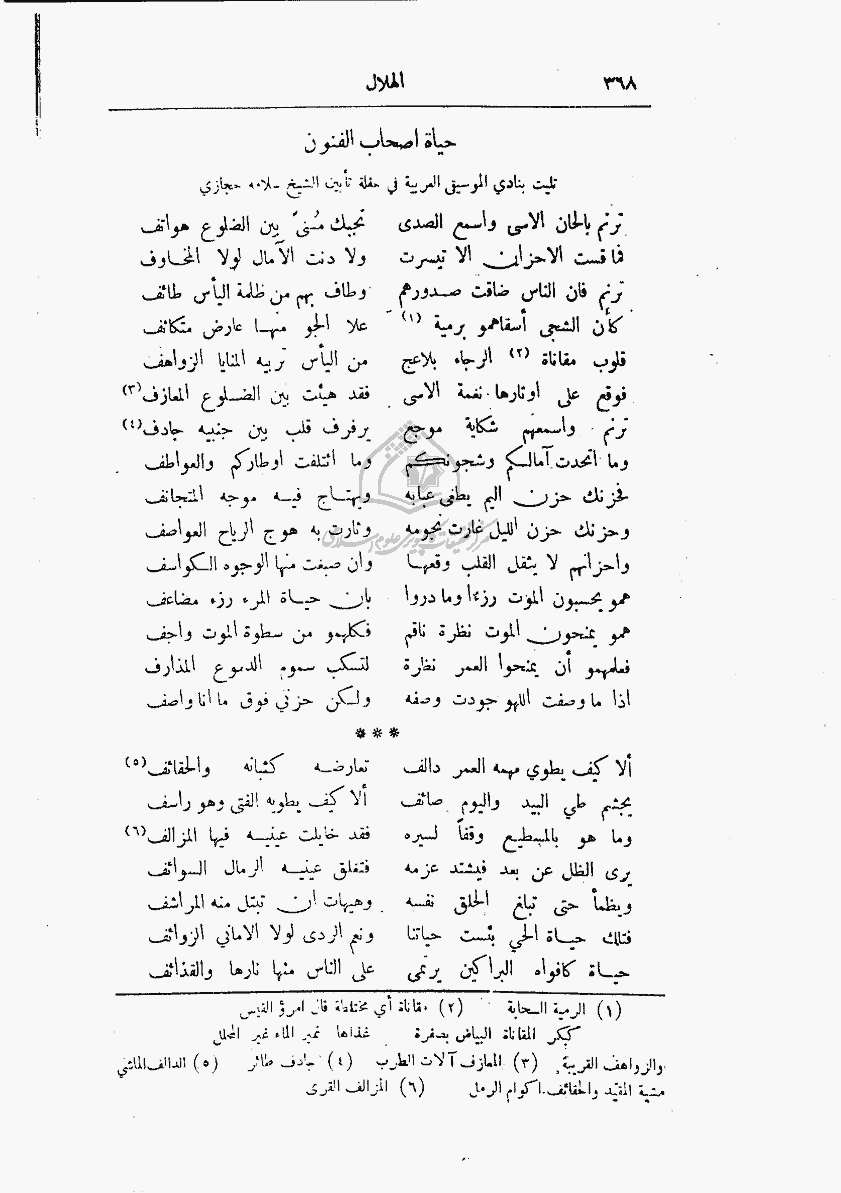 ٣٦٨ الهلال
حياة اصحاب الفنون
تليت بنادي الموسيقى العربية في حفلة تأبين الشيخ سلامه حجازي
ترنم بالحان الاسى واسمع الصدى تجبك مُنىً بين الضلوع هواتف
فما قست الاحزان الا تيسرت ولا دنت الآمال لولا المخاوف
ترنم فان الناس ضاقت صدورهم وطاف بهم من ظلمة اليأس طائف
كأن الشجى أسقاهمو برمية (١) علا الجو منها عارض متكاثف
قلوب مقاناة (٢) الرجاء بلاعج من اليأس تربيه المنايا الزواهف
فوقع على اوتارها نغمة الاسى فقد هيئت بين الضلوع المعازف (٣)
ترنم واسمعهم شكاية موجع يرفرف قلب بين جنبيه جادف (٤)
وما اتحدت آمالكم وشجونكم وما ائتلفت اوطاركم والعواطف
فحزنك حزن اليم يطغى عبابه ويهتاج فيه موجه المتجانف
وحزنك حزن الليل غارت نجومه وثارت به هوج الرياح العواصف
واحزانهم لا يثقل القلب وقعها وان صبغت منها الوجوه الكواسف
همو يحسبون الموت رزءاً وما دروا بان حياة المرء رزء مضاعف
همو يمنحون الموت نظرة ناقم فكلهمو من سطوة الموت واجف
فعلمهمو أن يمنحوا العمر نظرة لتسكب سموم الدموع المذارف
اذا ما وصفت اللهو جودت وصفه ولكن حزني فوق ما انا واصف
***
ألا كيف يطوي مهمه العمر دالف تعارضه كثبانه والحقائف (٥)
يجشم طي البيد واليوم صائف ألا كيف يطويه الفتى وهو راسف
وما هو بالمسطيع وقفاً لسيره فقد خايلت عينيه فيها المزالف (٦)
يرى الظل عن بعد فيشتد عزمه فتغلق عينيه الرمال السوائف
ويظمأ حتى تبلغ الحلق نفسه وهيهات ان تبتل منه المراشف
فتلك حياة الحي بئست حياتنا ونعم الردى لولا الاماني الزوائف
حياة كافواه البراكين يرتمى على الناس منها نارها والقذائف
(١) الرمية السحابة (٢) مقاناة أي مختلطة قال امرؤ القيس
كبكر المقاناة البياض بصفرة غذاها نمير الماء غير المحلل
والزواهف القريبة (٣) المعازف آلات الطرب (٤) جادف طائر (٥) الدالف الماشي
مشية المقيد والحقائف اكوام الرمل (٦) المزالف القرى